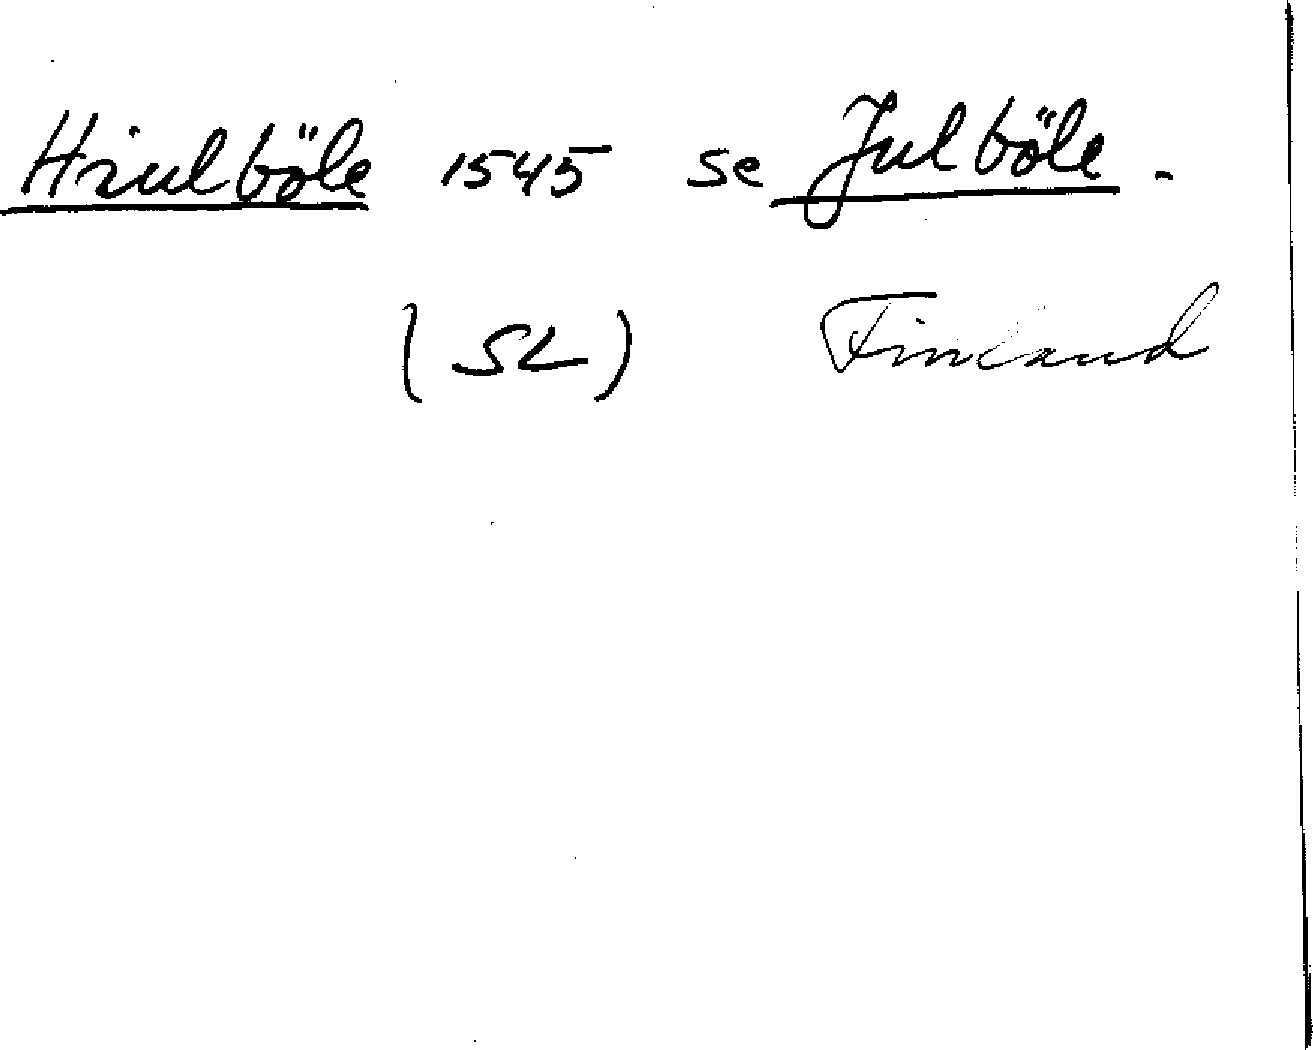 Hiulböle 1545 se Julböle.
(SL) Finland